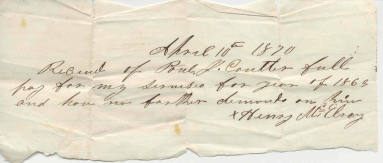 April 10th 1870
Received of Robt J. Coulter full
pay for my services for year of 1865
and have no farther demands on him
x Henry McElroy